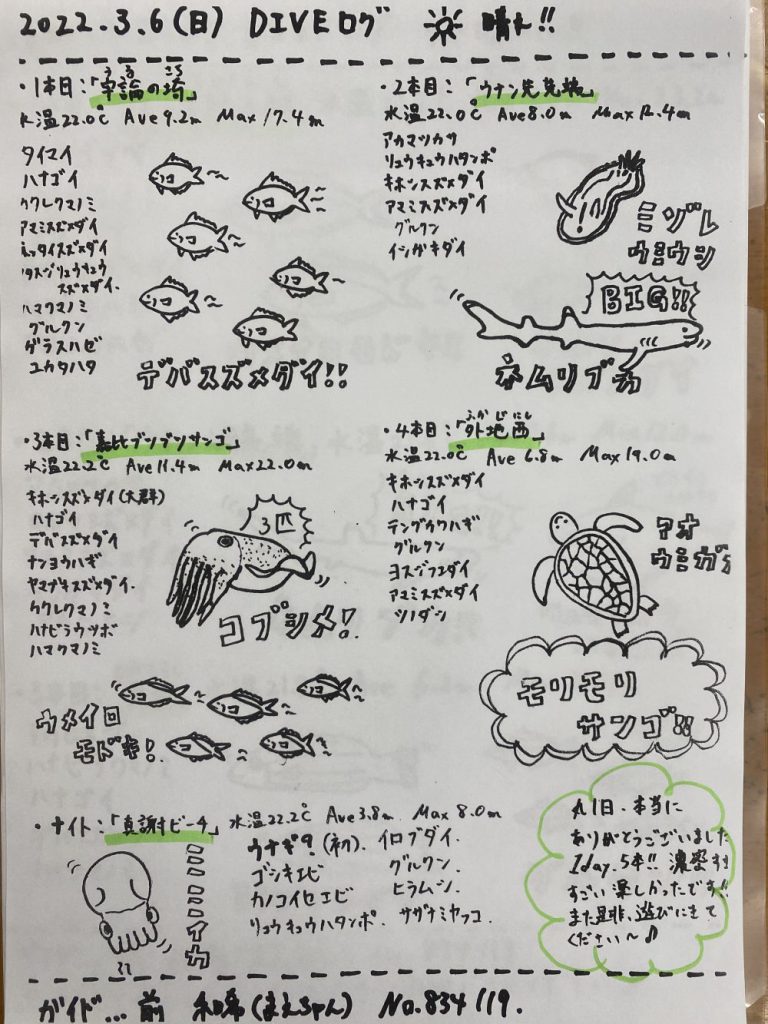 2022.3.6(日) DIVEログ 晴れ!!
・1本目:「宇論の埼」
うる こち
水温22.0℃ Ave9.2m Max17.4m
タイマイ
ハナゴイ
カクレクマノミ
アマミスズメダイ
ネッタイスズメダイ
タスジリュウキュウ
スズメダイ.
ハマクマノミ
グルクン
ガラスハゼ
ユカタハタ
デバスズメダイ!!
・2本目:「ウナン先
水温22.0℃ Ave8.0m Max12.4m
アカマツカサ
リュウキュウハタンポ
キホシスズメダイ
アマミスズメダイ
グルクン
イシガキダイ
ミゾレ
ウミウシ
BIG!!
ネムリブカ
・3本目:「嘉比ブツブツサンゴ」
水温22.2℃ Ave11.4m Max22.0m
キホシスズメダイ(大群)
ハナゴイ
デバスズメダイ
ナンヨウハギ
ヤマブキスズメダイ.
カクレクマノミ
ハナビラウツボ
ハマクマノミ
3匹
コブシメ!
ウメイロ
モドキ!
・4本目:「外地西」
ふかじにし
水温22.0℃ Ave6.8m Max19.0m
キホシスズメダイ
ハナゴイ
テングカワハギ
グルクン
ヨスジフエダイ
アマミスズメダイ
ツノダシ
アオ
ウミガメ
モリモリ
サンゴ!!
・ナイト:「真謝ビーチ」 水温22.2℃ Ave3.8m Max8.0m
ミミイカ
ウナギ?(初).
ゴシキエビ
カノコイセエビ
リュウキュウハタンポ.
イロブダイ.
グルクン.
ヒラムシ.
サザナミヤッコ.
1日、本当に
ありがとうございました
1day.5本!! 濃密す
すごい楽しかったです!!
また是非、遊びにきて
ください〜♪
ガイド... 前 和希(まえちゃん) No.834119.